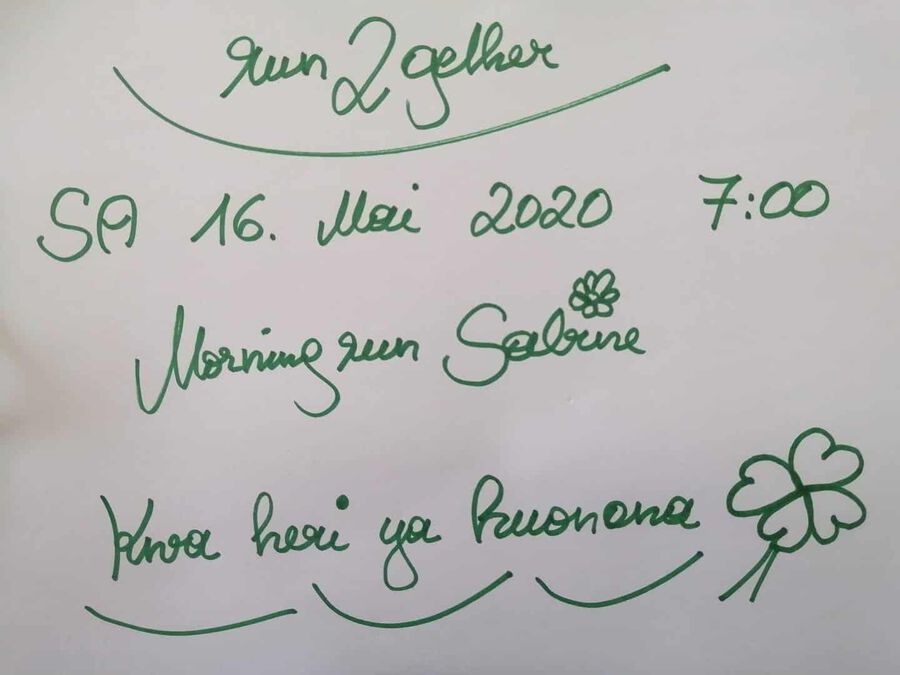 run2gether
SA 16. Mai 2020 7:00
Morningrun Sabine
Kwa heri ya kuonana